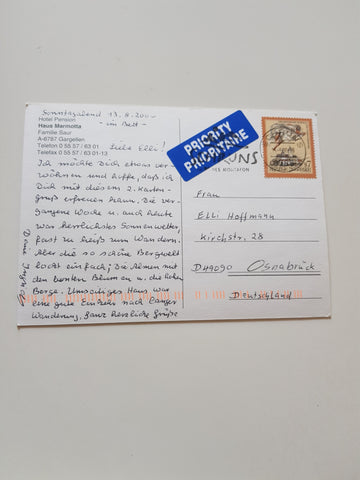 Sonntagabend 13.8.2000
- im Bett -
Hotel Pension
Haus Marmotta
Familie Saur
A-6787 Gargellen
Telefon 0 55 57 / 63 01
Telefax 0 55 57 / 63 01-13
Liebe Elli!
Ich möchte Dich etwas ver-
wöhnen und hoffe, daß ich
Dich mit diesem 2. Karten-
gruß erfreuen kann. Die ver-
gangene Woche u. auch heute
war herrlichstes Sonnenwetter,
fast zu heiß zum Wandern.
Aber die so schöne Bergwelt
lockt einfach; die Almen mit
den bunten Blumen u. die hohen
Berge. Umseitiges Haus war
eine gute Einkehr nach langer
Wanderung. Ganz herzliche Grüße
Deine
PRIORITY
PRIORITAIRE
MONTAFON
Frau
Elli Hoffmann
Kirchstr. 28
D-49090 Osnabrück
Deutschland